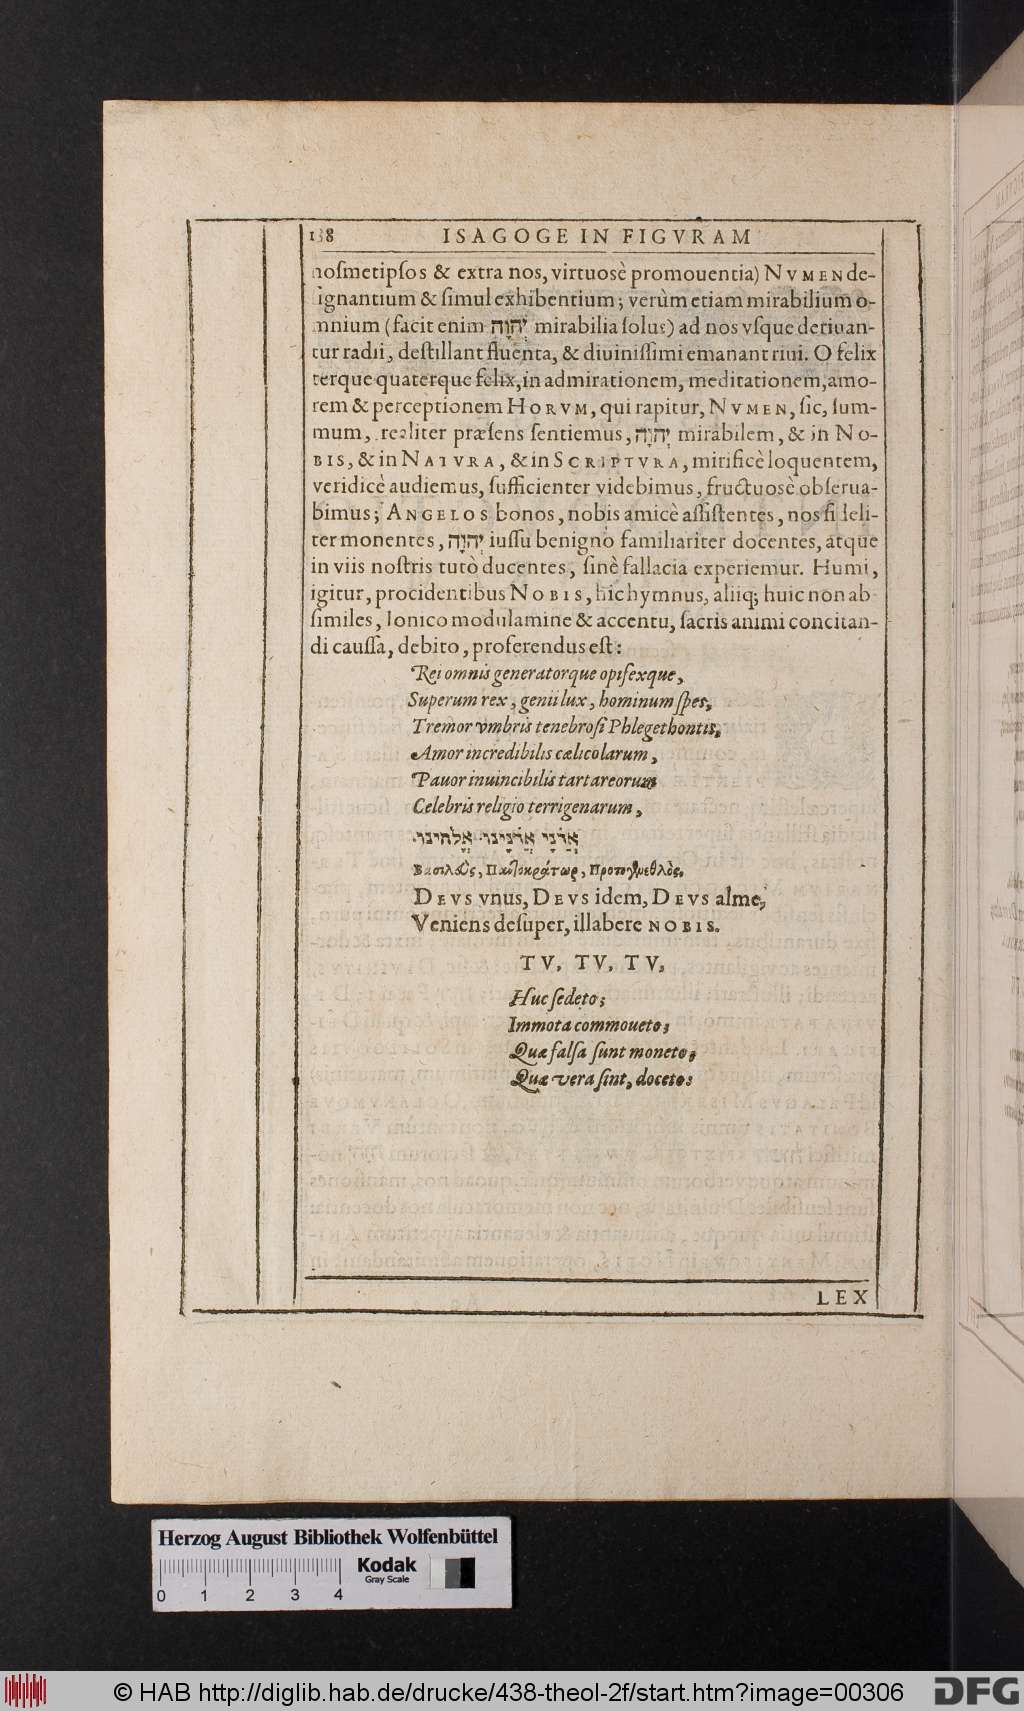 138 ISAGOGE IN FIGVRAM
noſmetipſos & extra nos, virtuosè promouentia) NVMEN de-
ſignantium & ſimul exhibentium; verùm etiam mirabilium o-
mnium (facit enim יְהוָה mirabilia ſolus) ad nos vſque deriuan-
tur radii, deſtillant fluenta, & diuiniſſimi emanant riui. O felix
terque quaterque felix, in admirationem, meditationem, amo-
rem & perceptionem HORVM, qui rapitur, NVMEN, ſic, ſum-
mum, realiter præſens ſentiemus, יְהוָה mirabilem, & in NO-
BIS, & in NATVRA, & in SCRIPTVRA, mirificè loquentem,
veridicè audiemus, ſufficienter videbimus, fructuosè obſerua-
bimus; ANGELOS bonos, nobis amicè aſſiſtentes, nos fideli-
ter monentes, יְהוָה iuſſu benigno familiariter docentes, atque
in viis noſtris tutò ducentes, ſinè fallacia experiemur. Humi,
igitur, procidentibus NOBIS, hic hymnus, aliiq; huic non ab
ſimiles, Ionico modulamine & accentu, ſacris animi concitan-
di cauſſa, debito, proferendus eſt:
Rei omnis generatorque opifexque,
Superum rex, genii lux, hominum ſpes,
Tremor vmbris tenebroſi Phlegethontis,
Amor incredibilis cælicolarum,
Pauor inuincibilis tartareorum
Celebris religio terrigenarum,
אֲדֹנָי אֲדֹנָינוּ אֱלֹהֵינוּ
Βασιλεὺς, Παντοκράτωρ,
DEVS vnus, DEVS idem, DEVS alme,
Veniens deſuper, illabere NOBIS.
TV, TV, TV,
Huc ſedeto;
Immota commoueto;
Quæ falſa ſunt moneto;
Quæ vera ſint, doceto:
LEX
Herzog August Bibliothek Wolfenbüttel
Kodak
Gray Scale
0 1 2 3 4
© HAB http://diglib.hab.de/drucke/438-theol-2f/start.htm?image=00306
DFG